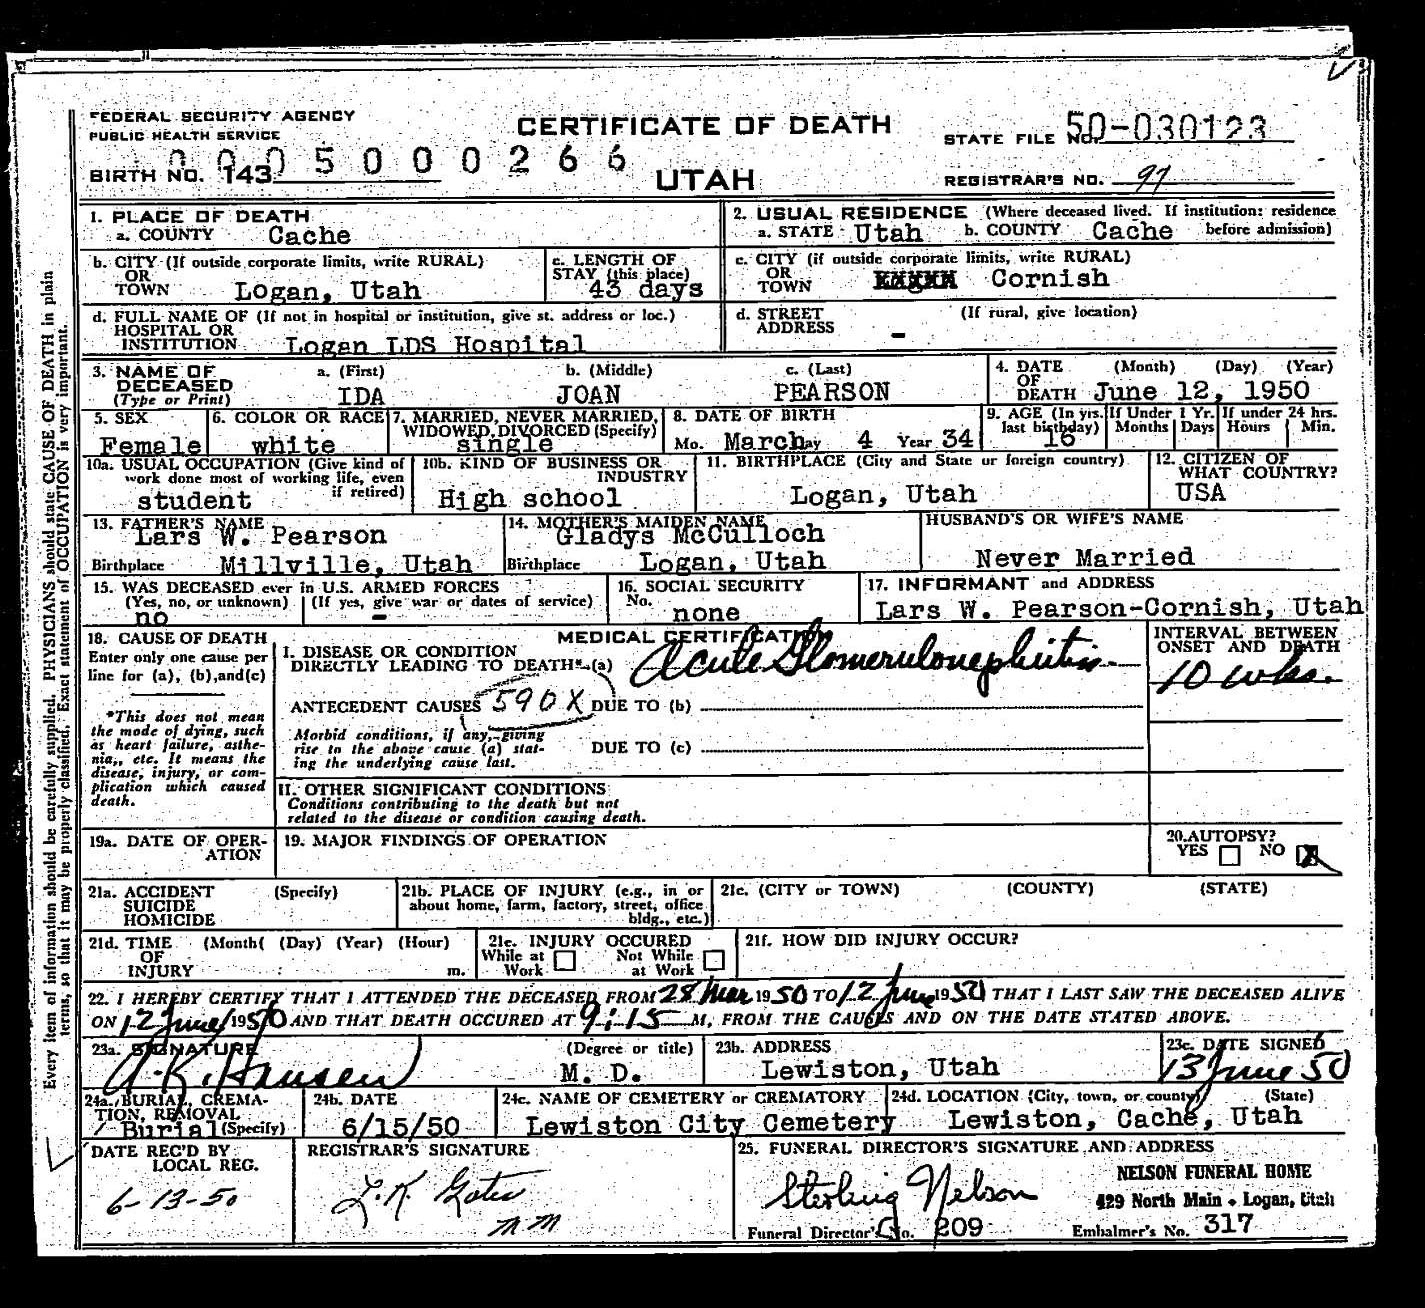 FEDERAL SECURITY AGENCY
PUBLIC HEALTH SERVICE
CERTIFICATE OF DEATH
UTAH
STATE FILE NO. 50-030123
0005000266
BIRTH NO. 143
REGISTRAR'S NO. 97
1. PLACE OF DEATH
a. COUNTY Cache
2. USUAL RESIDENCE (Where deceased lived. If institution: residence before admission)
a. STATE Utah b. COUNTY Cache
b. CITY (If outside corporate limits, write RURAL)
OR
TOWN Logan, Utah
c. LENGTH OF
STAY (this place)
43 days
c. CITY (if outside corporate limits, write RURAL)
OR
TOWN Cornish
d. FULL NAME OF (If not in hospital or institution, give st. address or loc.)
HOSPITAL OR
INSTITUTION Logan LDS Hospital
d. STREET (If rural, give location)
ADDRESS -
3. NAME OF
DECEASED
(Type or Print)
a. (First) b. (Middle) c. (Last)
IDA JOAN PEARSON
4. DATE (Month) (Day) (Year)
OF
DEATH June 12, 1950
5. SEX
Female
6. COLOR OR RACE
white
7. MARRIED, NEVER MARRIED,
WIDOWED, DIVORCED (Specify)
single
8. DATE OF BIRTH
Mo. March Day 4 Year 34
9. AGE (In yrs. last birthday)
16
If Under 1 Yr.
Months Days
If under 24 hrs.
Hours Min.
10a. USUAL OCCUPATION (Give kind of
work done most of working life, even
if retired)
student
10b. KIND OF BUSINESS OR
INDUSTRY
High school
11. BIRTHPLACE (City and State or foreign country)
Logan, Utah
12. CITIZEN OF
WHAT COUNTRY?
USA
13. FATHER'S NAME
Lars W. Pearson
Birthplace Millville, Utah
14. MOTHER'S MAIDEN NAME
Gladys McCulloch
Birthplace Logan, Utah
HUSBAND'S OR WIFE'S NAME
Never Married
15. WAS DECEASED ever in U.S. ARMED FORCES
(Yes, no, or unknown) (If yes, give war or dates of service)
no -
16. SOCIAL SECURITY
No.
none
17. INFORMANT and ADDRESS
Lars W. Pearson-Cornish, Utah
18. CAUSE OF DEATH
Enter only one cause per
line for (a), (b), and (c)
*This does not mean
the mode of dying, such
as heart failure, asthe-
nia,, etc. It means the
disease, injury, or com-
plication which caused
death.
MEDICAL CERTIFICATION
I. DISEASE OR CONDITION
DIRECTLY LEADING TO DEATH* (a) Acute Glomerulonephritis
ANTECEDENT CAUSES 590X DUE TO (b)
Morbid conditions, if any, giving
rise to the above cause (a) stat-
ing the underlying cause last.
DUE TO (c)
INTERVAL BETWEEN
ONSET AND DEATH
10 wks.
II. OTHER SIGNIFICANT CONDITIONS
Conditions contributing to the death but not
related to the disease or condition causing death.
19a. DATE OF OPER-
ATION
19. MAJOR FINDINGS OF OPERATION
20. AUTOPSY?
YES NO X
21a. ACCIDENT (Specify)
SUICIDE
HOMICIDE
21b. PLACE OF INJURY (e.g., in or
about home, farm, factory, street, office
bldg., etc.)
21c. (CITY or TOWN) (COUNTY) (STATE)
21d. TIME (Month( (Day) (Year) (Hour)
OF
INJURY m.
21e. INJURY OCCURED
While at Work Not While at Work
21f. HOW DID INJURY OCCUR?
22. I HEREBY CERTIFY THAT I ATTENDED THE DECEASED FROM 28 Mar 1950 TO 12 June 1950 THAT I LAST SAW THE DECEASED ALIVE
ON 12 June 1950 AND THAT DEATH OCCURED AT 9:15 M, FROM THE CAUSES AND ON THE DATE STATED ABOVE.
23a. SIGNATURE (Degree or title)
A. K. Hansen M. D.
23b. ADDRESS
Lewiston, Utah
23c. DATE SIGNED
13 June 50
24a. BURIAL, CREMA-
TION, REMOVAL
Burial (Specify)
24b. DATE
6/15/50
24c. NAME OF CEMETERY or CREMATORY
Lewiston City Cemetery
24d. LOCATION (City, town, or county) (State)
Lewiston, Cache, Utah
DATE REC'D BY
LOCAL REG.
6-13-50
REGISTRAR'S SIGNATURE
L. K. Gates
mm
25. FUNERAL DIRECTOR'S SIGNATURE AND ADDRESS
Sterling Nelson
NELSON FUNERAL HOME
429 North Main - Logan, Utah
Funeral Director's No. 209
Embalmer's No. 317
Every item of information should be carefully supplied. PHYSICIANS should state CAUSE OF DEATH in plain
terms, so that it may be properly classified. Exact statement of OCCUPATION is very important.